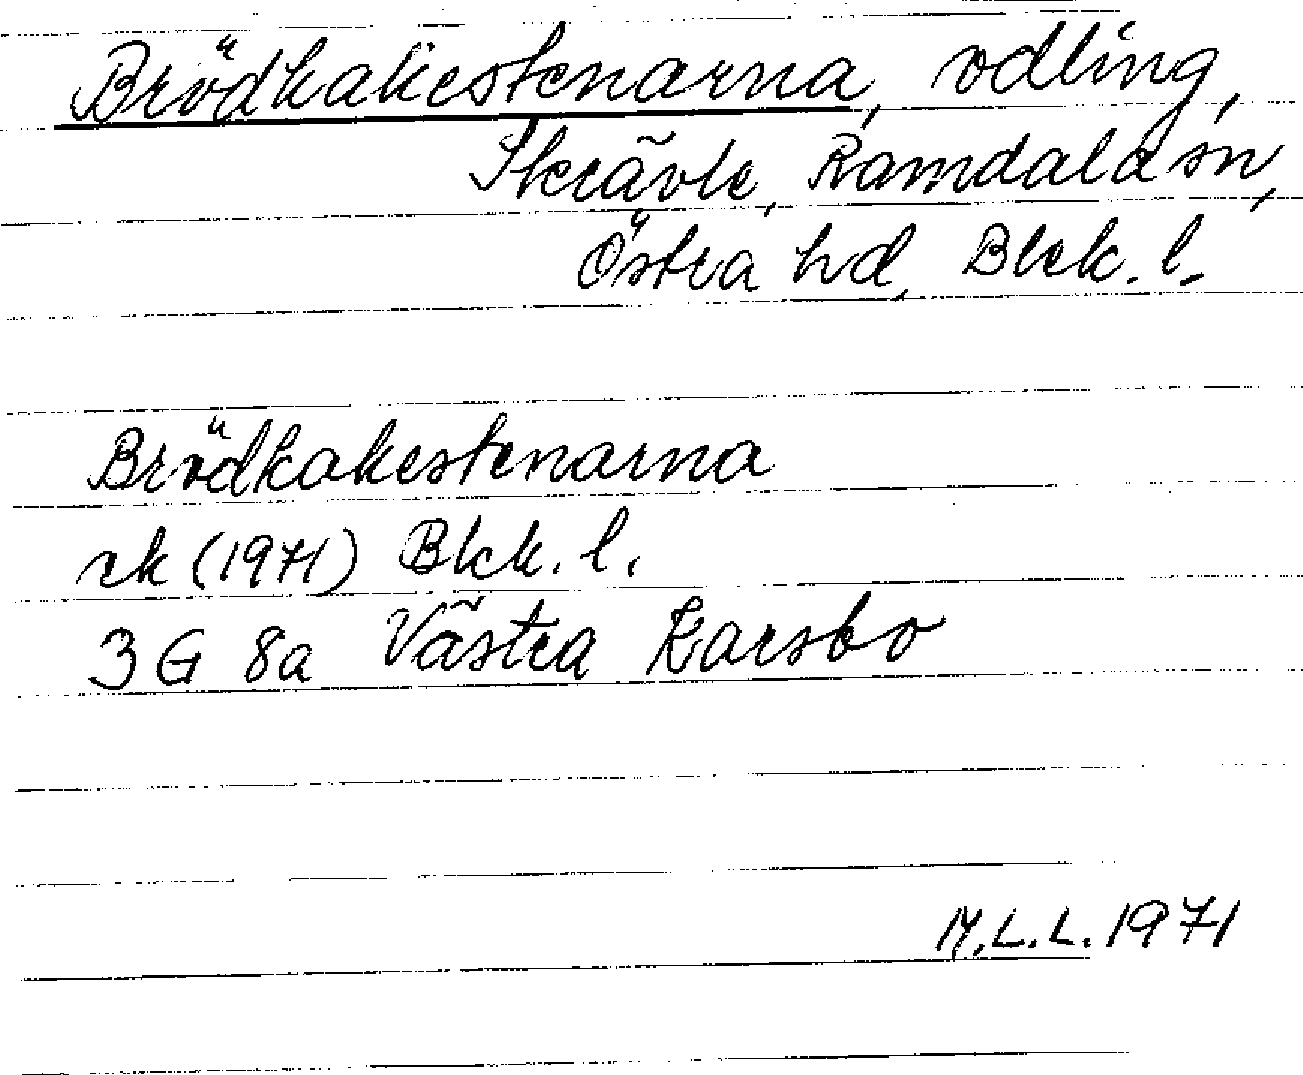 Brödkakestenarna, odling,
Skrävle, Ramdala sn,
Östra hd, Blek. l.
Brödkakestenarna
ek (1971) Blek. l.
3 G 8a Västra Karsbo
M.L.L. 1971